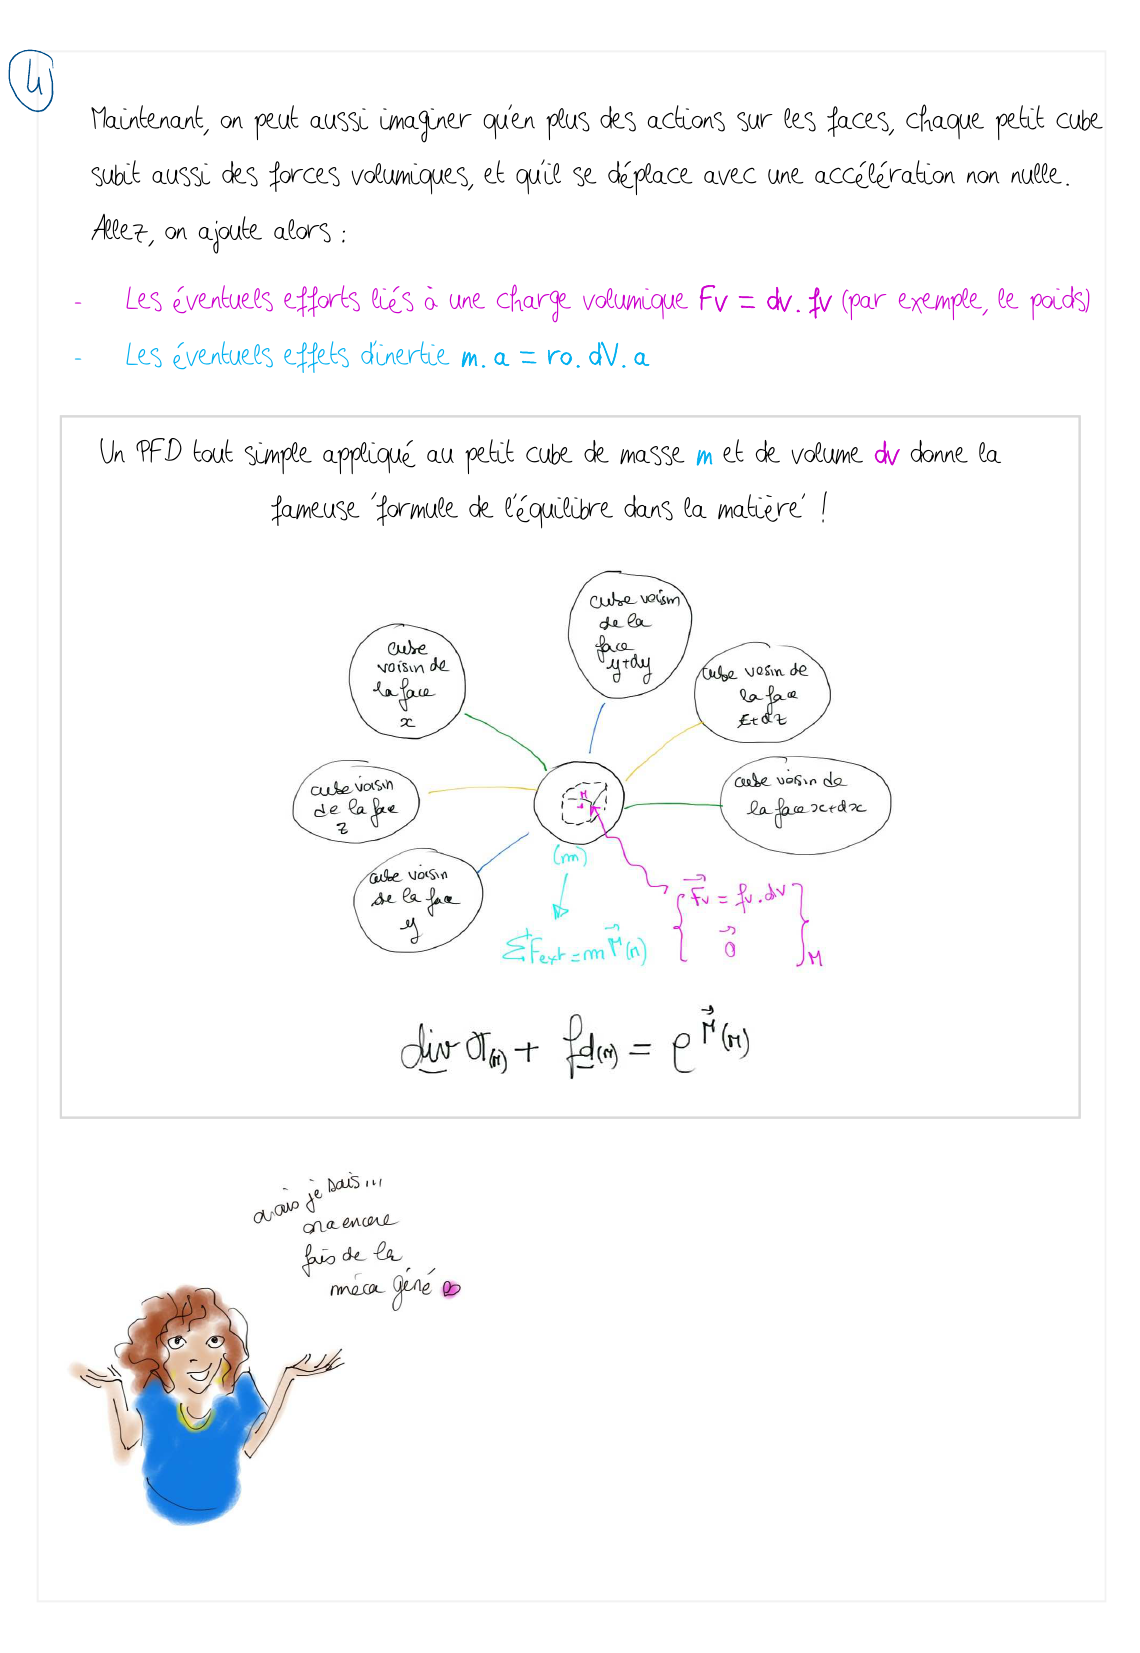 4
Maintenant, on peut aussi imaginer qu'en plus des actions sur les faces, chaque petit cube
subit aussi des forces volumiques, et qu'il se déplace avec une accélération non nulle.
Allez, on ajoute alors :
- Les éventuels efforts liés à une charge volumique Fv = dv. fv (par exemple, le poids)
- Les éventuels effets d'inertie m. a = ro. dV. a
Un PFD tout simple appliqué au petit cube de masse m et de volume dv donne la
fameuse 'formule de l'équilibre dans la matière' !
cube voisin
de la
face
y+dy
cube
voisin de
la face
x
cube voisin de
la face
z+dz
cube voisin
de la face
z
cube voisin de
la face x+dx
M
cube voisin
de la face
y
(m)
Σ F⃗ext = m Γ⃗(M)
{ F⃗v = fv. dv
0⃗ }M
div σ(M) + fd(M) = ρ Γ⃗(M)
ouais je sais...
on a encore
fais de la
méca géné